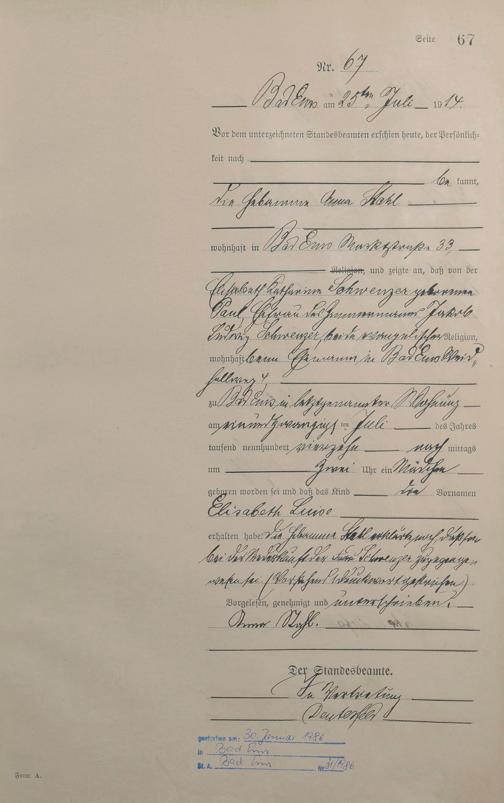 Seite 67
Nr. 67
Bad Ems am 25ten Juli 1914.
Vor dem unterzeichneten Standesbeamten erschien heute, der Persönlich-
keit nach
be kannt,
die Hebamme Anna Stahl
wohnhaft in Bad Ems Marktstraße 33
Religion, und zeigte an, daß von der
Elisabeth Katharina Schwenzer geborenen
Paul, Ehefrau des Zimmermanns Jakob
Ludwig Schwenzer, beide evangelischer Religion,
wohnhaft beim Ehemann in Bad Ems
4,
zu Bad Ems in letztgenannter Wohnung
am zwanzigsten Juli des Jahres
tausend neunhundert vierzehn nach mittags
um zwei Uhr ein Mädchen
geboren worden sei und daß das Kind die Vornamen
Elisabeth Luise
erhalten habe. Die Hebamme Stahl erklärte noch, daß sie
bei der Niederkunft der Frau Schwenzer zugegen ge-
wesen sei. (Vorstehend 1 Druckwort gestrichen)
Vorgelesen, genehmigt und unterschrieben.
Anna Stahl.
Der Standesbeamte.
In Vertretung
gestorben am: 30. Januar 1986
in Bad Ems
St. A. Bad Ems Nr.
Form A.